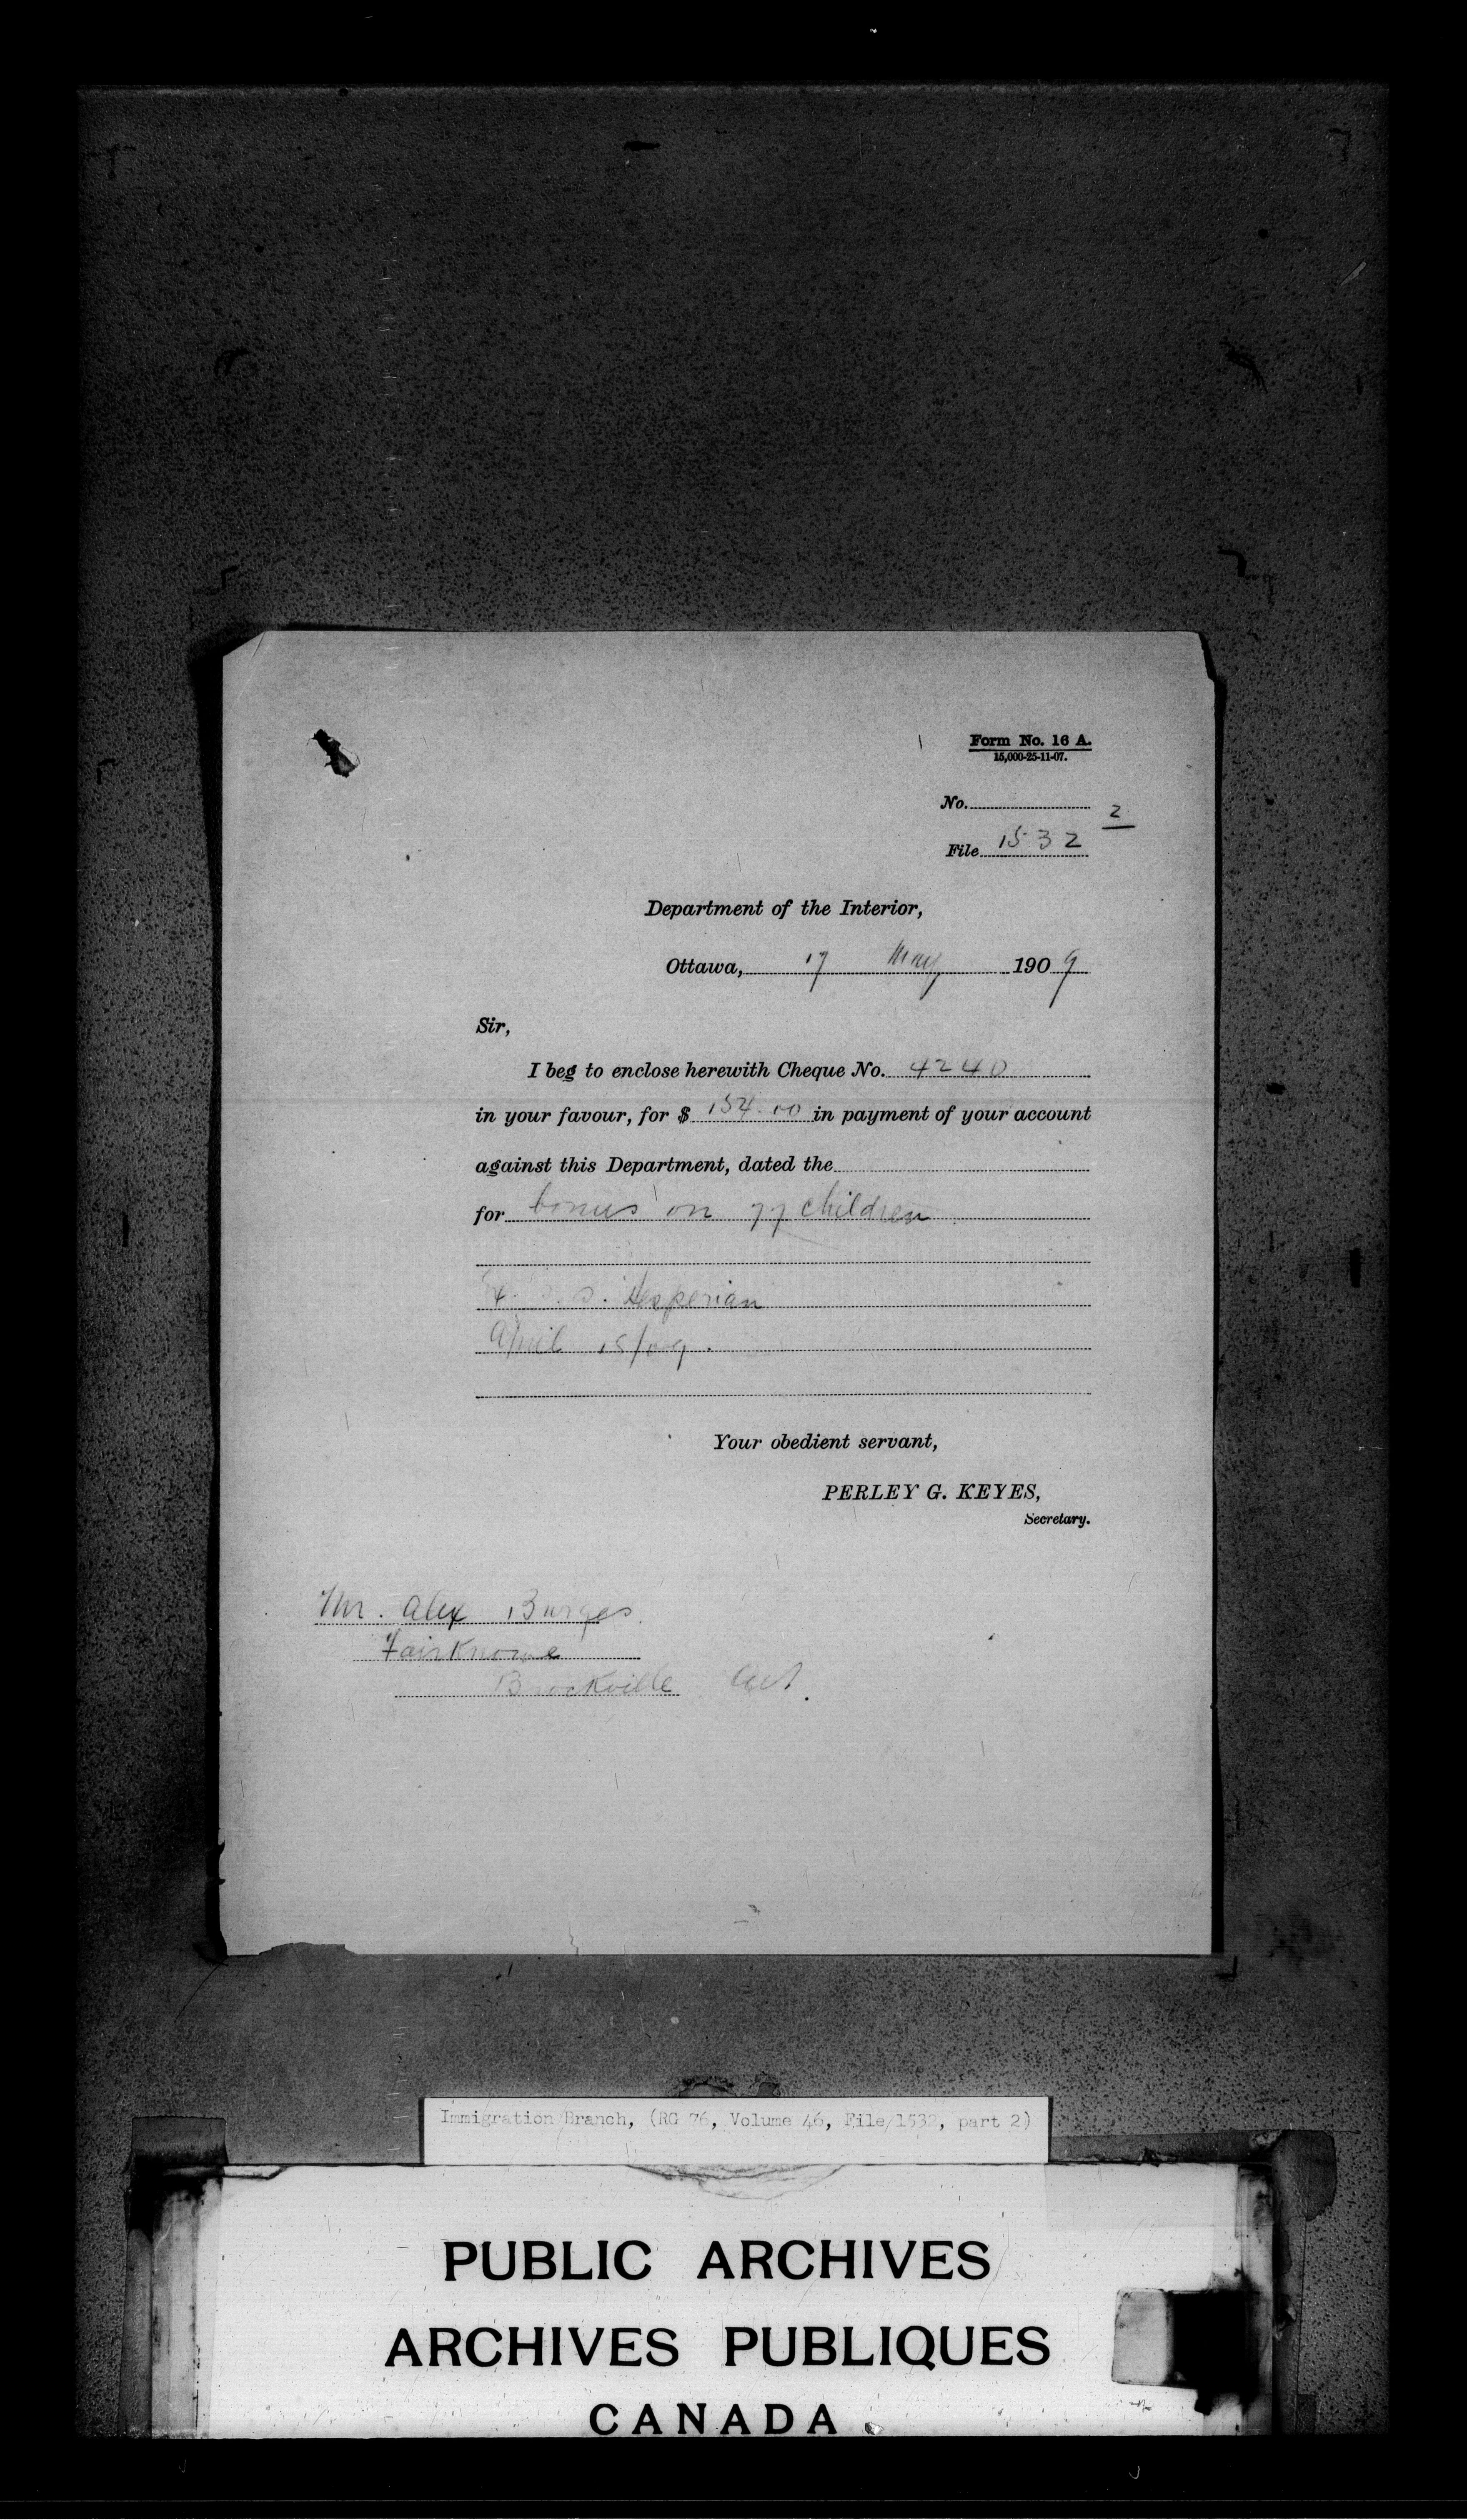 Form No. 16 A.
15,000-25-11-07.
No.
2
File 1532
Department of the Interior,
Ottawa, 17 May 1909
Sir,
I beg to enclose herewith Cheque No. 4240
in your favour, for $ 154.00 in payment of your account
against this Department, dated the
for bonus on 77 children
Ex. S.S. Hesperian
April 15/09.
Your obedient servant,
PERLEY G. KEYES,
Secretary.
Mr. Alex Burges
Fairknowe
Brockville Ont.
Immigration Branch, (RG 76, Volume 46, File 1532, part 2)
PUBLIC ARCHIVES
ARCHIVES PUBLIQUES
CANADA